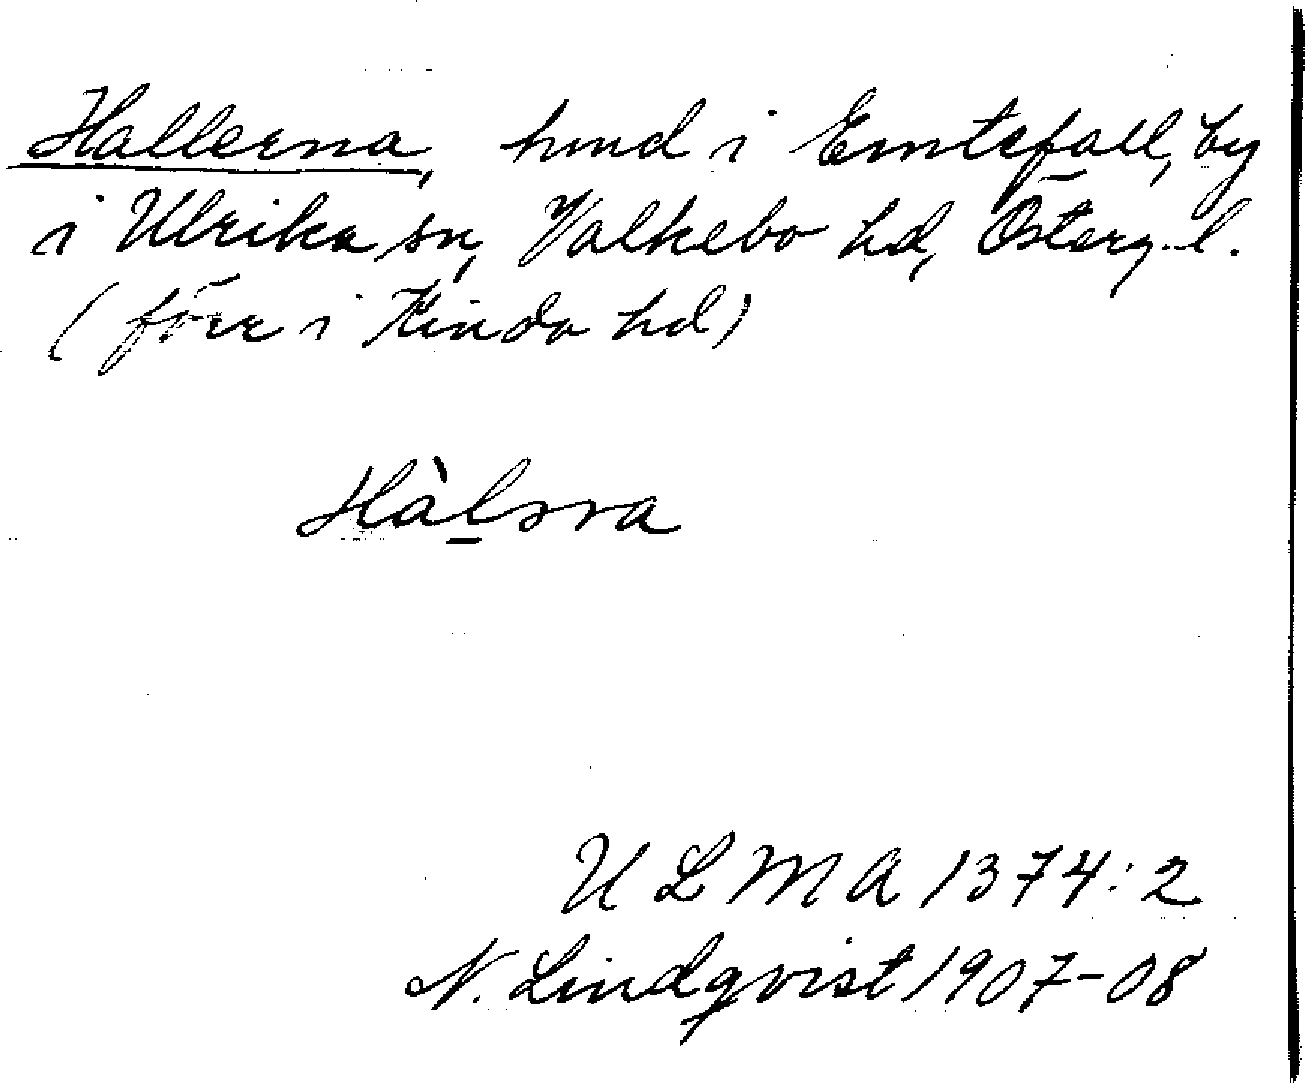 Hallerna, hmd i Emtefall, by
i Ulrika sn, Valkebo hd, Österg. l.
(förr i Kinda hd)
Hàlsra
U L M A 1374:2
N. Lindqvist 1907-08